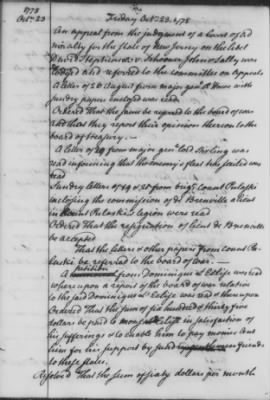 1778
Octr. 23.
Friday Octr. 23. 1778
An appeal from the judgment of a Court of Ad
miralty for the state of New Jersey on the libel
David Stephens &c v. Schooner John & Sally was
lodged and referred to the committee on Appeals
A letter of 26 August from major genl. Howe with
sundry papers inclosed was read
Ordered That the same be referred to the board of war
and that they report their opinion thereon to the
board of treasury.
A letter of 20 from major genl. Lord Stirling was
read informing that the enemy's fleet had sailed was
read
Sundry letters of 19 & 21 from brigr. Count Pulaski
inclosing the commission of de Brenville a lieut
in Count Pulaski's legion were read
Ordered That the resignation of lieut de Brenville
be accepted
That the letters & other papers from Count Pu-
laski be referred to the board of war.
A petition from Dominique L'Eglise was read
whereupon a report of the board of war relative
to the said Dominique L'Eglise was read & thereupon
Ordered That the sum of six hundred & thirty five
dollars be paid to L'Eglise in satisfaction of
his sufferings & to enable him to pay monies lent
him for his support by friends
to these states.
Resolved That the sum of sixty dollars per month